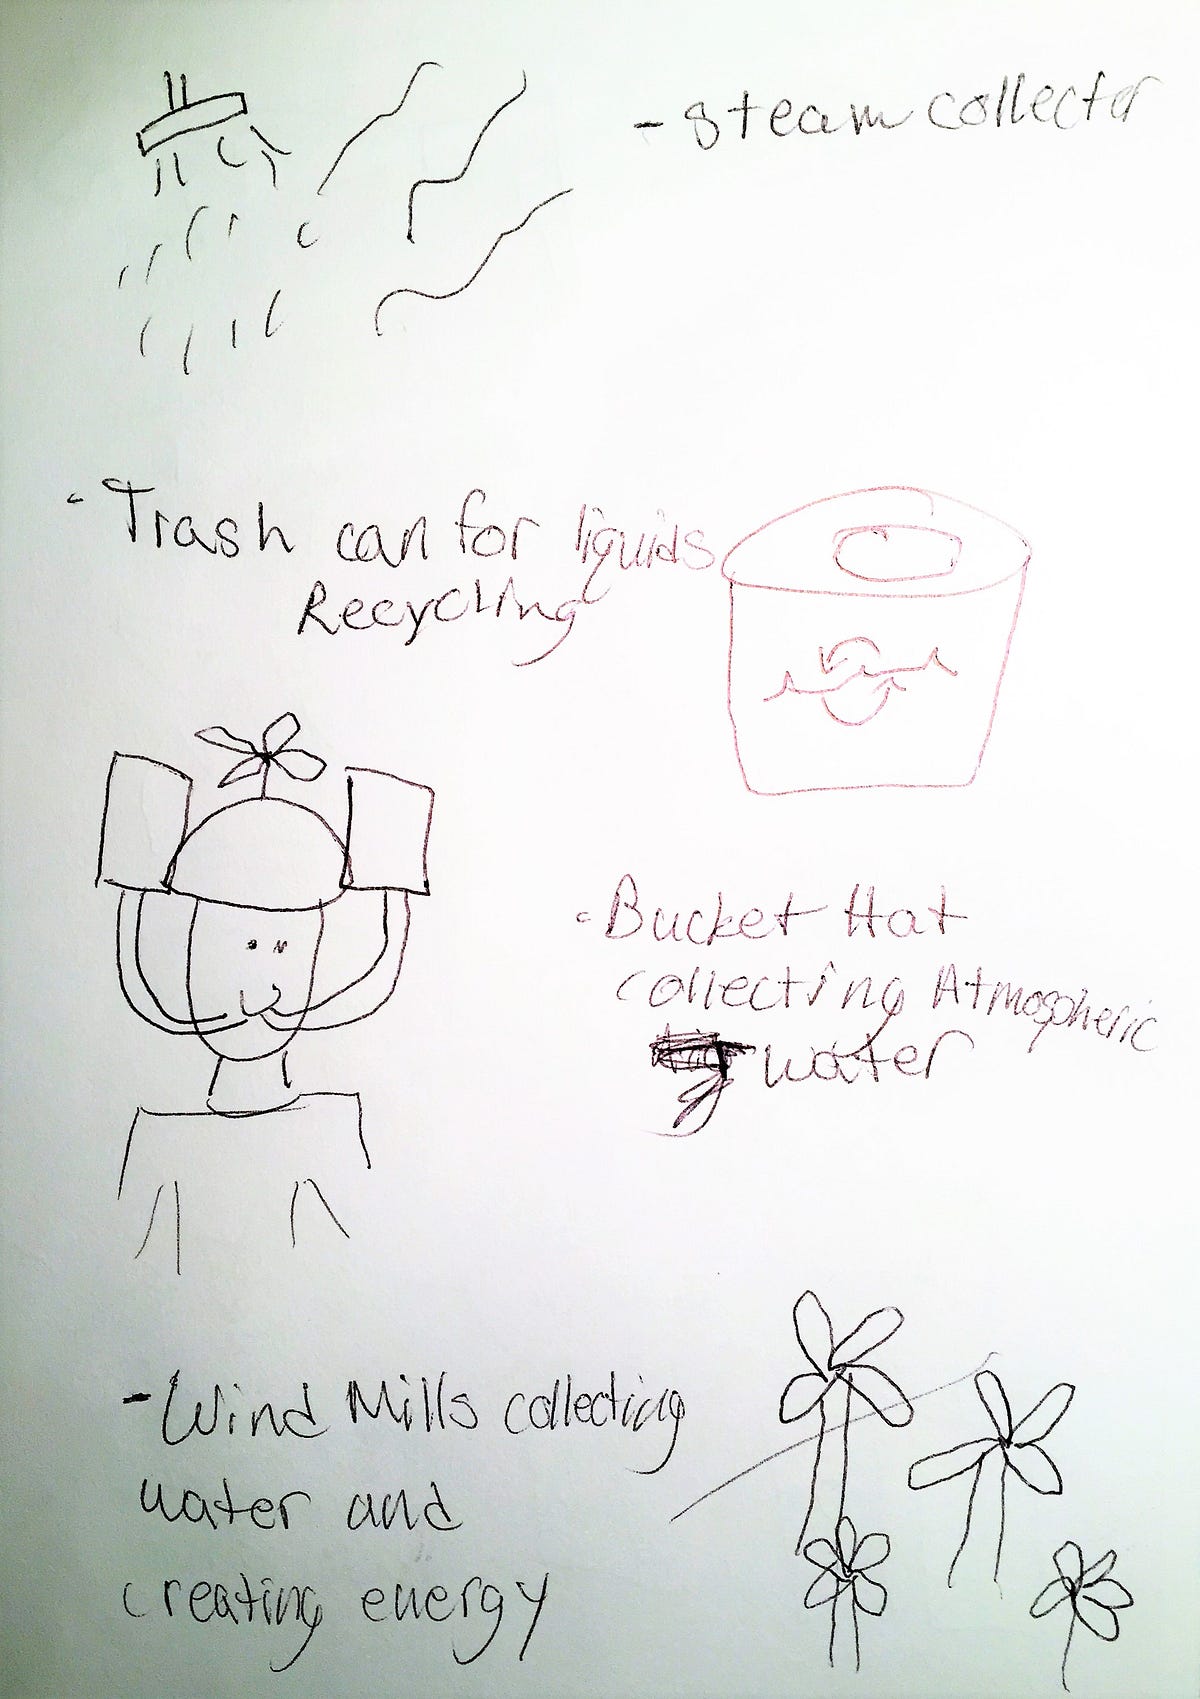 - steam collector
- Trash can for liquids
Recycling
- Bucket Hat
collecting Atmospheric
water
- Wind Mills collecting
water and
creating energy